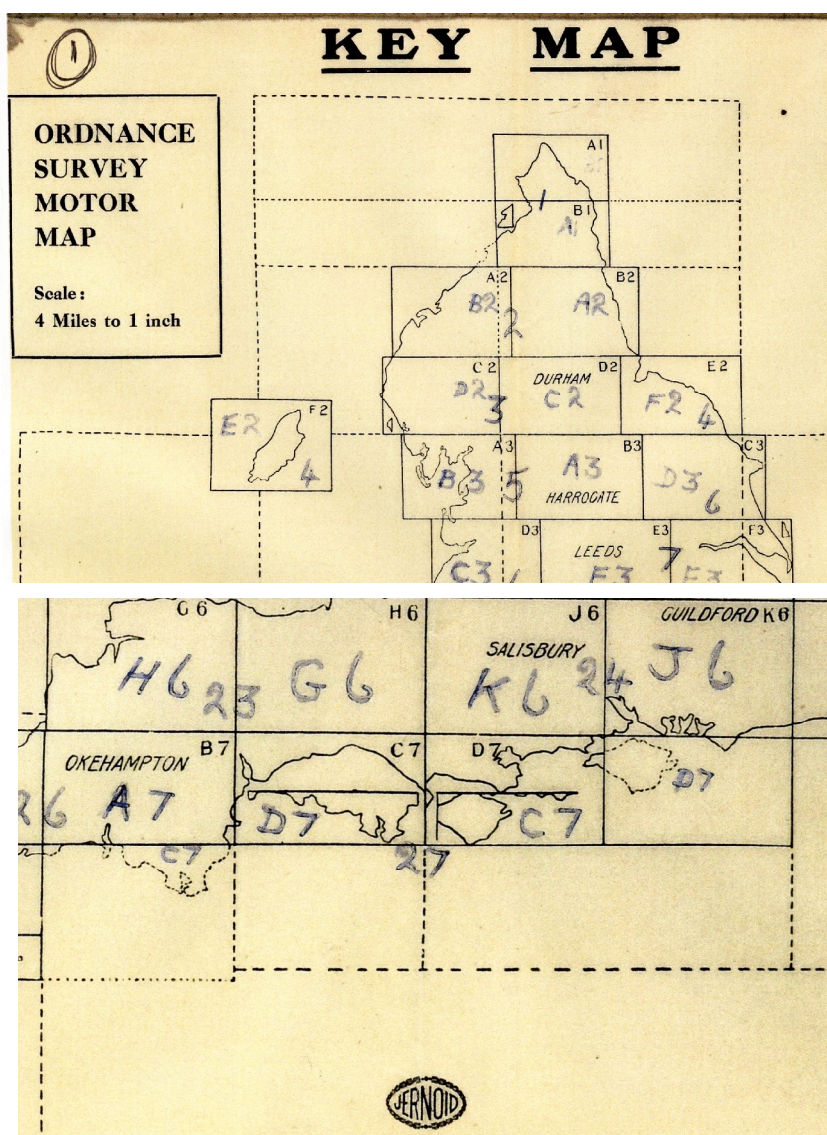 1
KEY MAP
ORDNANCE
SURVEY
MOTOR
MAP
Scale:
4 Miles to 1 inch
A1
1
B1
A1
A2 B2
B2 2 A2
C2 D2 E2
D2 3 DURHAM C2 F2 4
F2
E2
4
A3 B3 C3
B3 5 A3 D3 6
HARROGATE
D3 E3 F3
LEEDS 7
C3 E3 F3
G6 H6 J6 GUILDFORD K6
SALISBURY
H6 23 G6 K6 24 J6
B7 C7 D7
OKEHAMPTON
26 A7 D7 C7 D7
C7 27
JERNOID